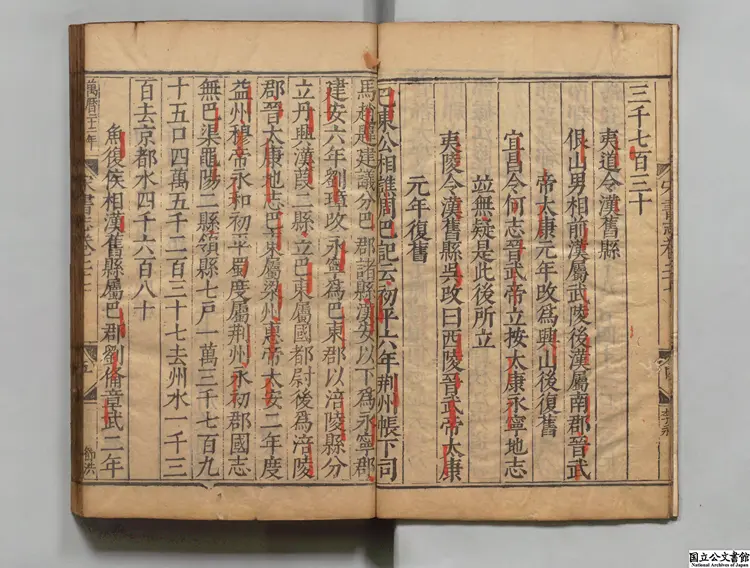 三千七百三十
夷道令漢舊縣
佷山男相前漢屬武陵後漢屬南郡晉武
帝太康元年改為興山後復舊
宜昌令何志晉武帝立按太康永寧地志
竝無疑是此後所立
夷陵令漢舊縣吳改曰西陵晉武帝太康
元年復舊
巴東公相譙周巴記云初平六年荆州帳下司
馬趙韙建議分巴郡諸縣漢安以下為永寧郡
建安六年劉璋改永寧為巴東郡以涪陵縣分
立丹興漢葭二縣立巴東屬國都尉後為涪陵
郡晉太康地志巴東屬梁州惠帝太安二年度
益州穆帝永和初平蜀度屬荆州永初郡國志
無巴渠黽陽二縣領縣七戶一萬三千七百九
十五口四萬五千二百三十七去州水一千三
百去京都水四千六百八十
魚復侯相漢舊縣屬巴郡劉備章武二年
萬曆二十二年
宋書志卷二十七
五
国立公文書館
National Archives of Japan